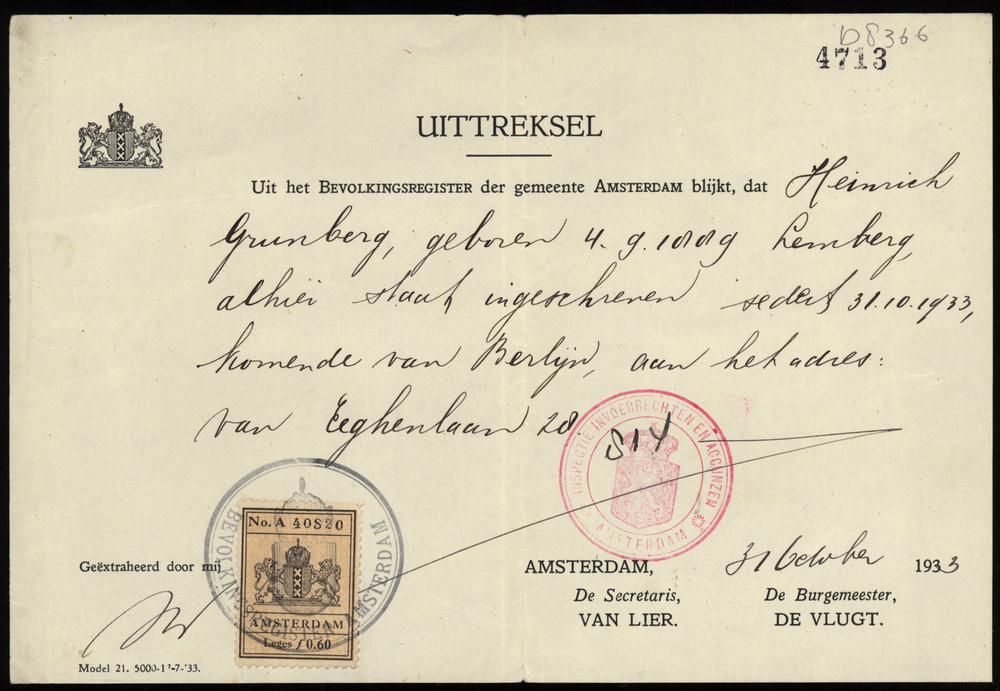 D8366
4713
UITTREKSEL
Uit het BEVOLKINGSREGISTER der gemeente AMSTERDAM blijkt, dat Heinrich
Grunberg, geboren 4. 9. 1889 Lemberg,
alhier staat ingeschreven sedert 31.10.1933,
komende van Berlijn, aan het adres:
van Eeghenlaan 28.
INSPECTIE INVOERRECHTEN EN ACCIJNZEN
AMSTERDAM
No. A 40820
AMSTERDAM
Leges f 0.60
BEVOLKINGSREGISTER AMSTERDAM
Geëxtraheerd door mij
AMSTERDAM, 31 October 1933
De Secretaris, De Burgemeester,
VAN LIER. DE VLUGT.
Model 21. 5000-1
-7-'33.